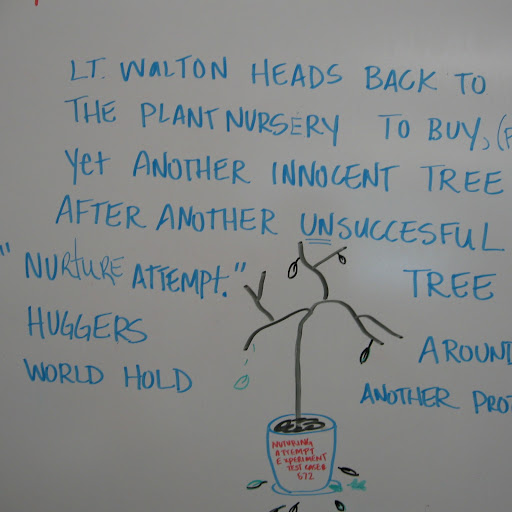 LT. WALTON HEADS BACK TO
THE PLANT NURSERY TO BUY, (
YET ANOTHER INNOCENT TREE
AFTER ANOTHER UNSUCCESFUL
"NURTURE ATTEMPT." TREE
HUGGERS AROUND
WORLD HOLD ANOTHER
NUTURING
ATTEMPT
EXPERIMENT
TEST CASE #
572